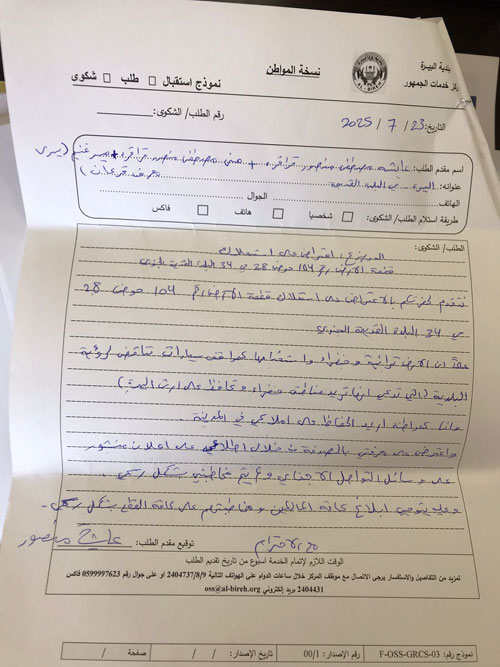 بلدية البيرة
مركز خدمات الجمهور
AL-BIREH
نسخة المواطن
نموذج استقبال طلب شكوى
رقم الطلب/ الشكوى:
التاريخ: 23 / 7 / 2025
اسم مقدم الطلب: عائشة مصطفى منصور قرعان + منى مصطفى منصور قرعان +
عنوانه: البيرة - حي البلدة القديمة
الهاتف: الجوال
طريقة استلام الطلب/ الشكوى: شخصيا هاتف فاكس
الطلب/ الشكوى:
الموضوع: اعتراض على استملاك
قطعة الأرض رقم 104 حوض 28 حي 34 البلدة القديمة الجنوبي
نتقدم لحضرتكم بالاعتراض على استملاك قطعة الأرض رقم 104 حوض 28
حي 34 البلدة القديمة الجنوبي
علما ان الأرض تراثية وخضراء واستعمالها كمواقف سيارات يناقض لرؤية
البلدية (التي تدعي انها تريد مناطق خضراء وتحافظ على ارث المدينة)
وانا كمواطنة اريد الحفاظ على املاكي في المدينة.
واعترض على معرفتي بالصدفة من خلال اطلاعي على اعلان منشور
على وسائل التواصل الاجتماعي ولم يتم مخاطبتي بشكل رسمي.
وعليه يتوجب ابلاغ كافة المالكين ومخاطبتهم على كافة القطع بشكل رسمي.
مع الاحترام
توقيع مقدم الطلب: عائشة منصور
الوقت اللازم لإتمام الخدمة اسبوع من تاريخ تقديم الطلب
لمزيد من التفاصيل والاستفسار يرجى الاتصال مع موظف المركز خلال ساعات الدوام على الهواتف التالية 2404737/8/9 او على جوال رقم 0599997623 فاكس
2404431 بريد إلكتروني oss@al-bireh.org
نموذج رقم: F-OSS-GRCS-03 رقم الإصدار: 00/1 تاريخ الإصدار: / / صفحة /